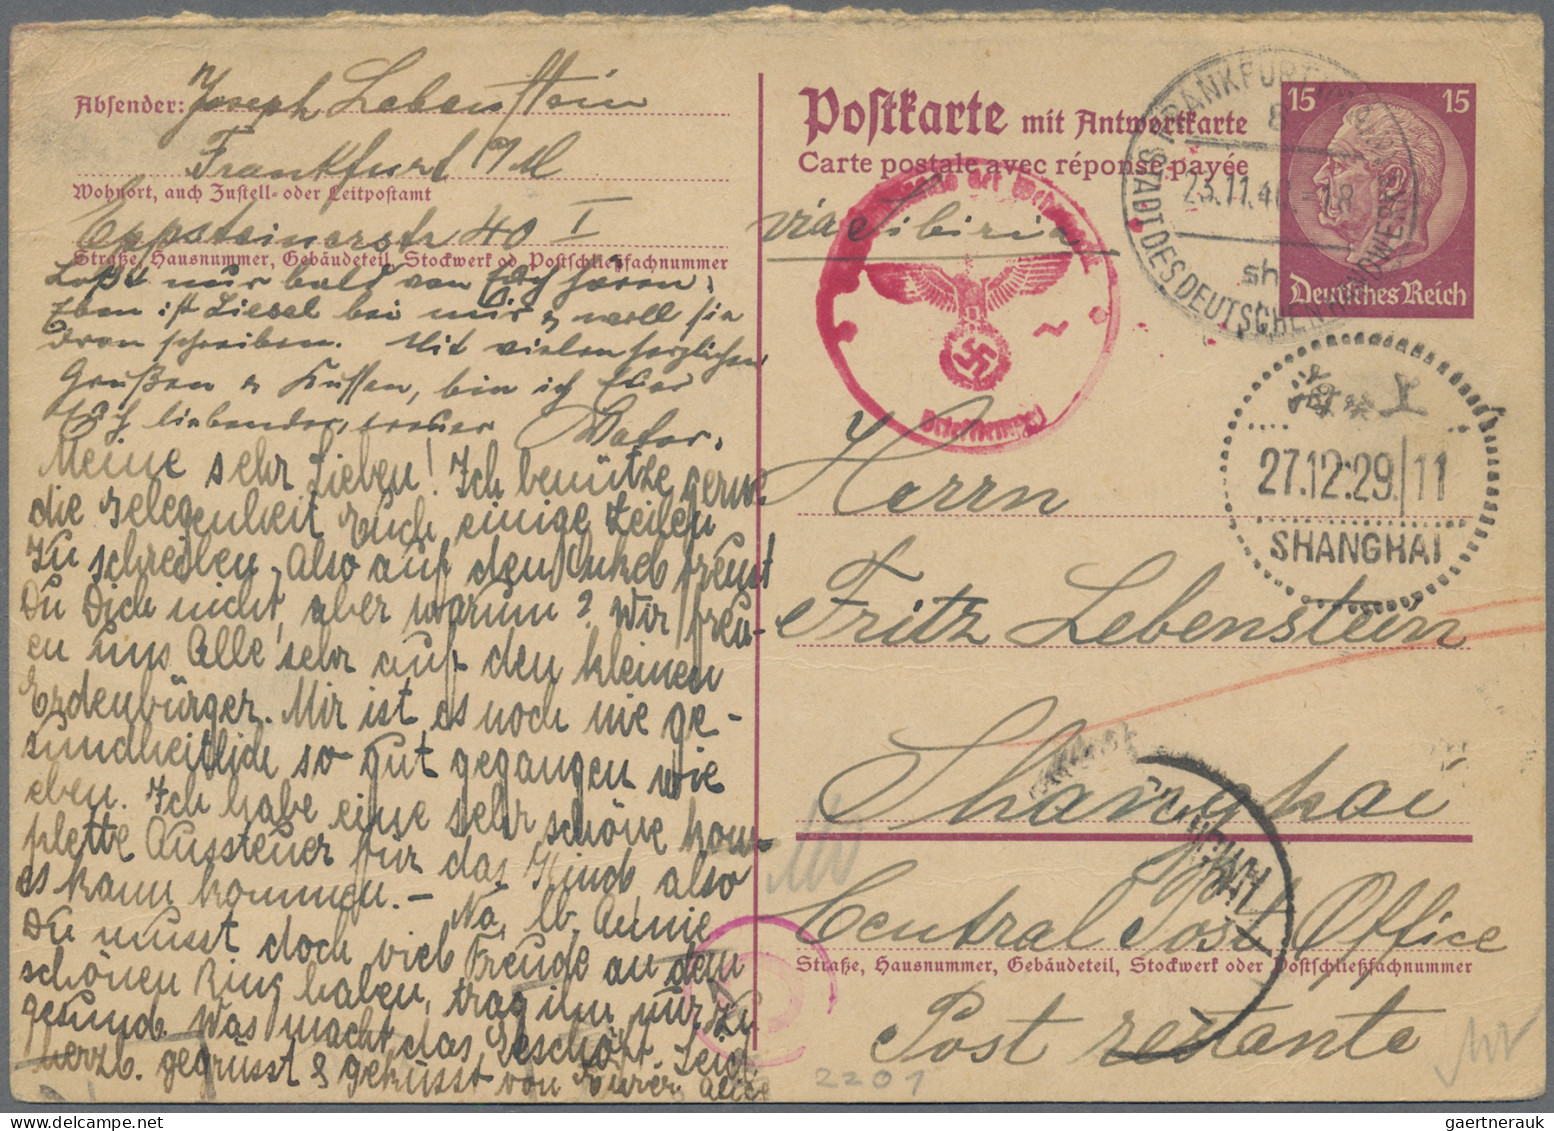 Absender: Joseph Lebenstein
Frankfurt a/M
Wohnort, auch Zustell- oder Leitpostamt
Eppsteinerstr 40 I
Straße, Hausnummer, Gebäudeteil, Stockwerk od Postschließfachnummer
Laßt nur bald von Euch hören;
Eben ist Liesel bei mir & will sie
dran schreiben. Mit vielen herzlichen
Grüßen & Küssen, bin ich Euer
Euch liebender, treuer Vater.
Meine sehr Lieben! Ich benütze gerne
die Gelegenheit Euch einige Zeilen
zu schreiben. Also auf den Onkel freust
Du Dich nicht, aber warum? Wir freu-
en uns Alle sehr auf den kleinen
Erdenbürger. Mir ist es noch nie ge-
sundheitlich so gut gegangen wie
eben. Ich habe eine sehr schöne kom-
plette Aussteuer für das Kind also
es kann kommen. —
Na, lb. Annie
Du musst doch viel Freude an dem
schönen Ring haben, trag ihn nur zu
gesund. Was macht das Geschäft. Seid
herzl. gegrüsst & geküsst von Eurer
Postkarte mit Antwortkarte
Carte postale avec réponse payée
via Sibiria
15 15
Deutsches Reich
FRANKFURT
23.11.40.-18
STADT DES DEUTSCHEN HANDWERKS
Briefstempel
27.12.29 11
SHANGHAI
Herrn
Fritz Lebenstein
Shanghai
Central Post Office
Straße, Hausnummer, Gebäudeteil, Stockwerk oder Postschließfachnummer
Post restante
2201
gaertnerauk